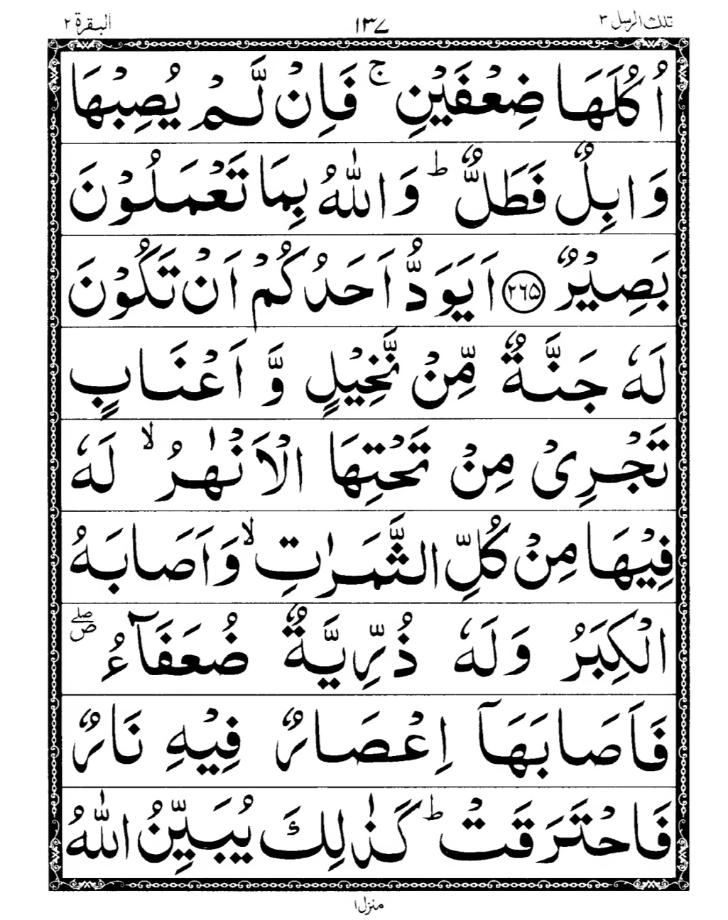 تلك الرسل ٣ ١٣٧ البقرة ٢
اُكُلَهَا ضِعْفَيْنِ ۚ فَاِنْ لَّمْ يُصِبْهَا
وَابِلٌ فَطَلٌّ ؕ وَاللّٰهُ بِمَا تَعْمَلُوْنَ
بَصِيْرٌ ﴿۲۶۵﴾ اَيَوَدُّ اَحَدُكُمْ اَنْ تَكُوْنَ
لَهٗ جَنَّةٌ مِّنْ نَّخِيْلٍ وَّ اَعْنَابٍ
تَجْرِیْ مِنْ تَحْتِهَا الْاَنْهٰرُ ۙ لَهٗ
فِيْهَا مِنْ كُلِّ الثَّمَرٰتِ ۙ وَاَصَابَهُ
الْكِبَرُ وَلَهٗ ذُرِّيَّةٌ ضُعَفَآءُ ۖ
فَاَصَابَهَاۤ اِعْصَارٌ فِيْهِ نَارٌ
فَاحْتَرَقَتْ ؕ كَذٰلِكَ يُبَيِّنُ اللّٰهُ
منزل ١